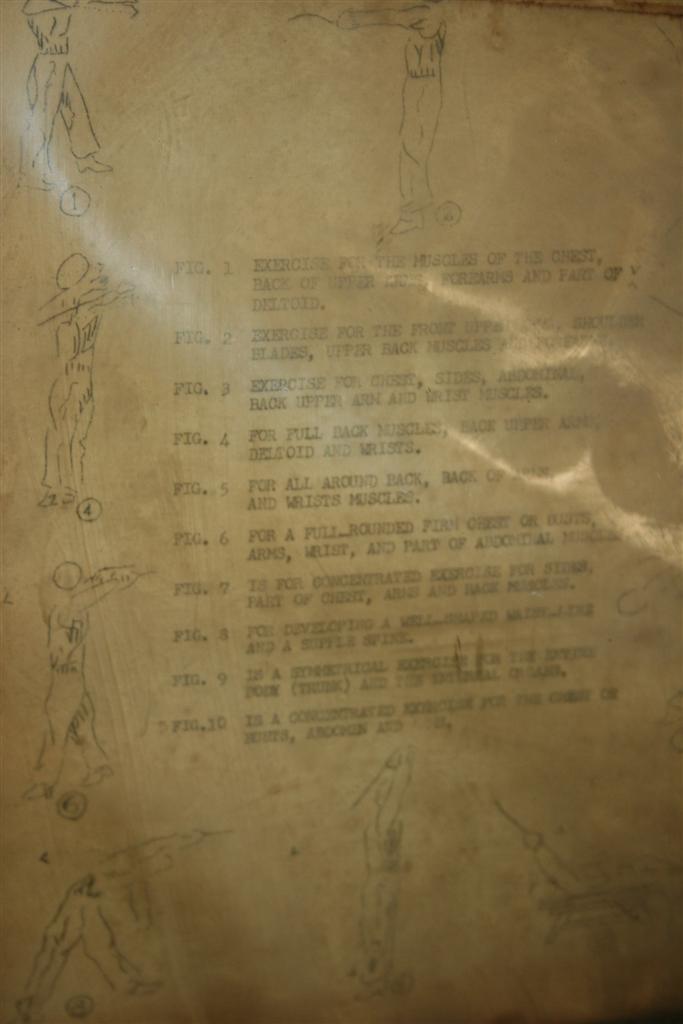 1
2
FIG. 1 EXERCISE FOR THE MUSCLES OF THE CHEST,
BACK OF UPPER ARMS, FOREARMS AND PART OF
DELTOID.
FIG. 2 EXERCISE FOR THE FRONT UPPER SHOULDER
BLADES, UPPER BACK MUSCLES AND
FIG. 3 EXERCISE FOR CHEST, SIDES, ABDOMINAL,
BACK UPPER ARM AND WRIST MUSCLES.
FIG. 4 FOR FULL BACK MUSCLES, BACK UPPER ARMS,
DELTOID AND WRISTS.
4
FIG. 5 FOR ALL AROUND BACK, BACK OF
AND WRISTS MUSCLES.
FIG. 6 FOR A FULL-ROUNDED FIRM CHEST OR BUSTS,
ARMS, WRIST, AND PART OF ABDOMINAL MUSCLES
FIG. 7 IS FOR CONCENTRATED EXERCISE FOR SIDES,
PART OF CHEST, ARMS AND BACK MUSCLES.
FIG. 8 FOR DEVELOPING A WELL-SHAPED WAIST-LINE
AND A SUPPLE SPINE.
FIG. 9 IS A SYMMETRICAL EXERCISE FOR THE ENTIRE
BODY (TRUNK) AND THE INTERNAL ORGANS.
FIG.10 IS A CONCENTRATED EXERCISE FOR THE CHEST OR
BUSTS, ABDOMEN AND
6
8